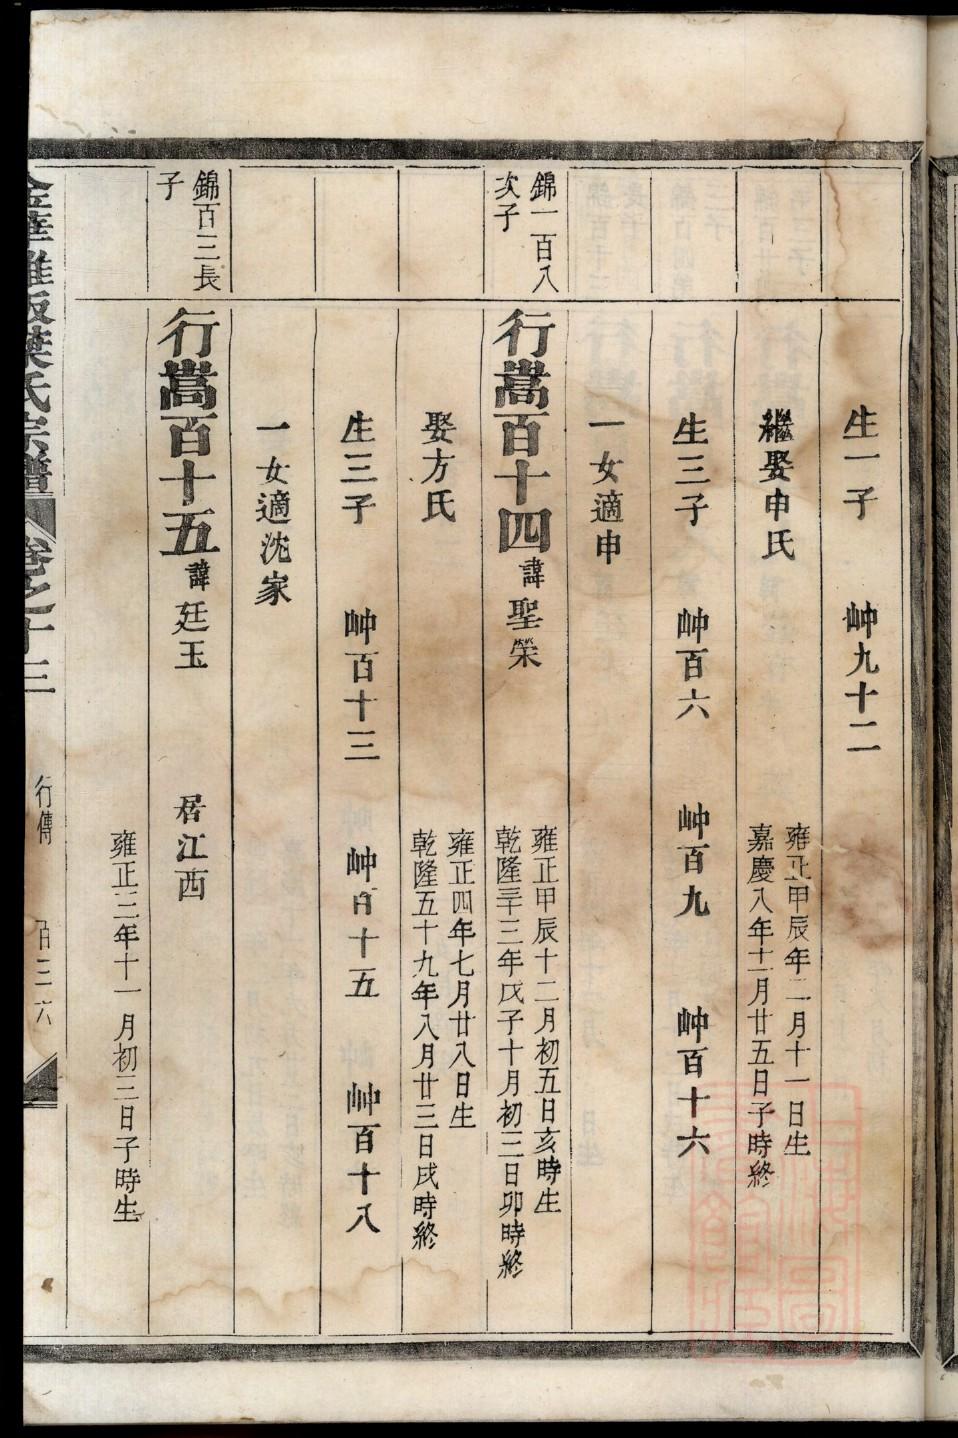 生一子　艸九十二
繼娶申氏
雍正甲辰年二月十一日生
嘉慶八年十一月廿五日子時終
生三子　艸百六　艸百九　艸百十六
一女適申
錦一百八
次子
行嵩百十四諱聖榮
雍正甲辰十二月初五日亥時生
乾隆三十三年戊子十月初三日卯時終
娶方氏
雍正四年七月廿八日生
乾隆五十九年八月廿三日戌時終
生三子　艸百十三　艸百十五　艸百十八
一女適沈家
錦百三長
子
行嵩百十五諱廷玉　居江西
雍正三年十一月初三日子時生
金華雅畈葉氏宗譜　卷之十三　行傳　百三六